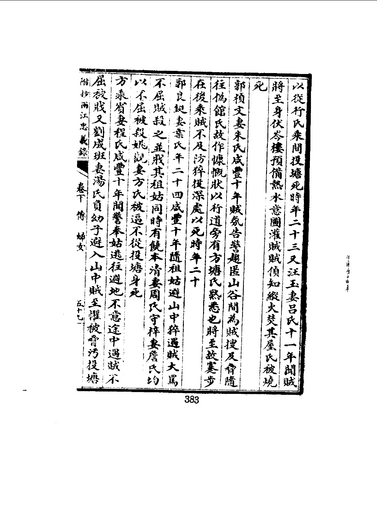 以從行氏乘間投塘死時年二十三又汪玉妻呂氏十一年聞賊
將至身伏岑樓預備熱水意圖灌賊賊偵知縱火焚其屋氏被燒
死
郭禎文妻朱氏咸豐十年賊氛告警趨匿山谷間為賊搜及脅隨
往偽館氏故作慷慨狀以行道旁有方塘氏熟悉也將至故褰步
在後乘賊不及防猝投深處以死時年二十
郭良鋌妻葉氏年二十四咸豐十年隨祖姑避山中猝遇賊大罵
不屈賊殺之並戕其祖姑同時有饒本清妻周氏守梓妻詹氏均
以不屈被殺姚觀妻方氏被逼不從投塘身死
方來省妻程氏咸豐十年聞警奉姑遠往避地不意途中遇賊不
屈被戕又劉成班妻湯氏負幼子避入山中賊至懼被脅污投塘
兩江忠義錄
卷下傳 婦女
五十七
383